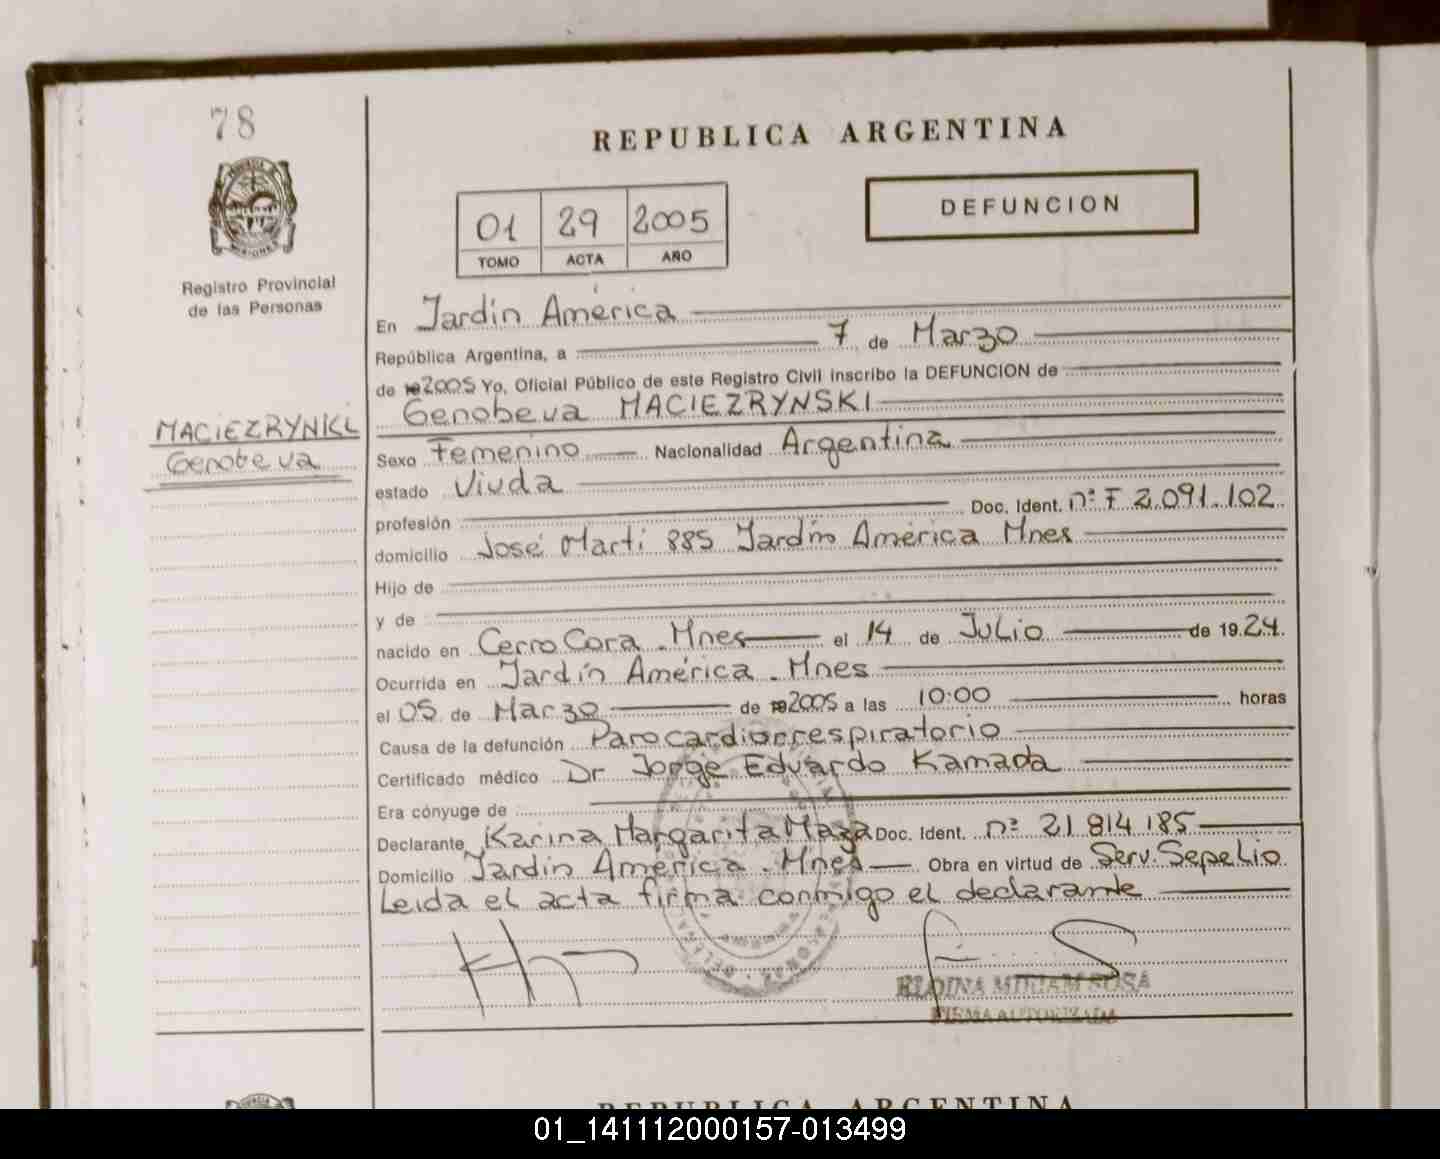 78
REPUBLICA ARGENTINA
DEFUNCION
01 29 2005
TOMO ACTA AÑO
Registro Provincial
de las Personas
MACIEZRYNKI
Genobeva
En Jardín América
República Argentina, a 7 de Marzo
de 2005 Yo, Oficial Público de este Registro Civil inscribo la DEFUNCION de
Genobeva MACIEZRYNSKI
Sexo Femenino Nacionalidad Argentina
estado Viuda
profesión Doc. Ident. nº F 2.091.102
domicilio José Martí 885 Jardín América Mnes
Hijo de
y de
nacido en Cerro Cora. Mnes el 14 de Julio de 1924.
Ocurrida en Jardín América. Mnes
el 05 de Marzo de 2005 a las 10:00 horas
Causa de la defunción Paro cardiorrespiratorio
Certificado médico Dr Jorge Eduardo Kamada
Era cónyuge de
Declarante Karina Margarita Maza Doc. Ident. nº 21 814 185
Domicilio Jardín América. Mnes Obra en virtud de Serv. Sepelio
Leida el acta firma conmigo el declarante
ELDINA MIRIAM SOSA
FIRMA AUTORIZADA
REPUBLICA ARGENTINA
01_141112000157-013499